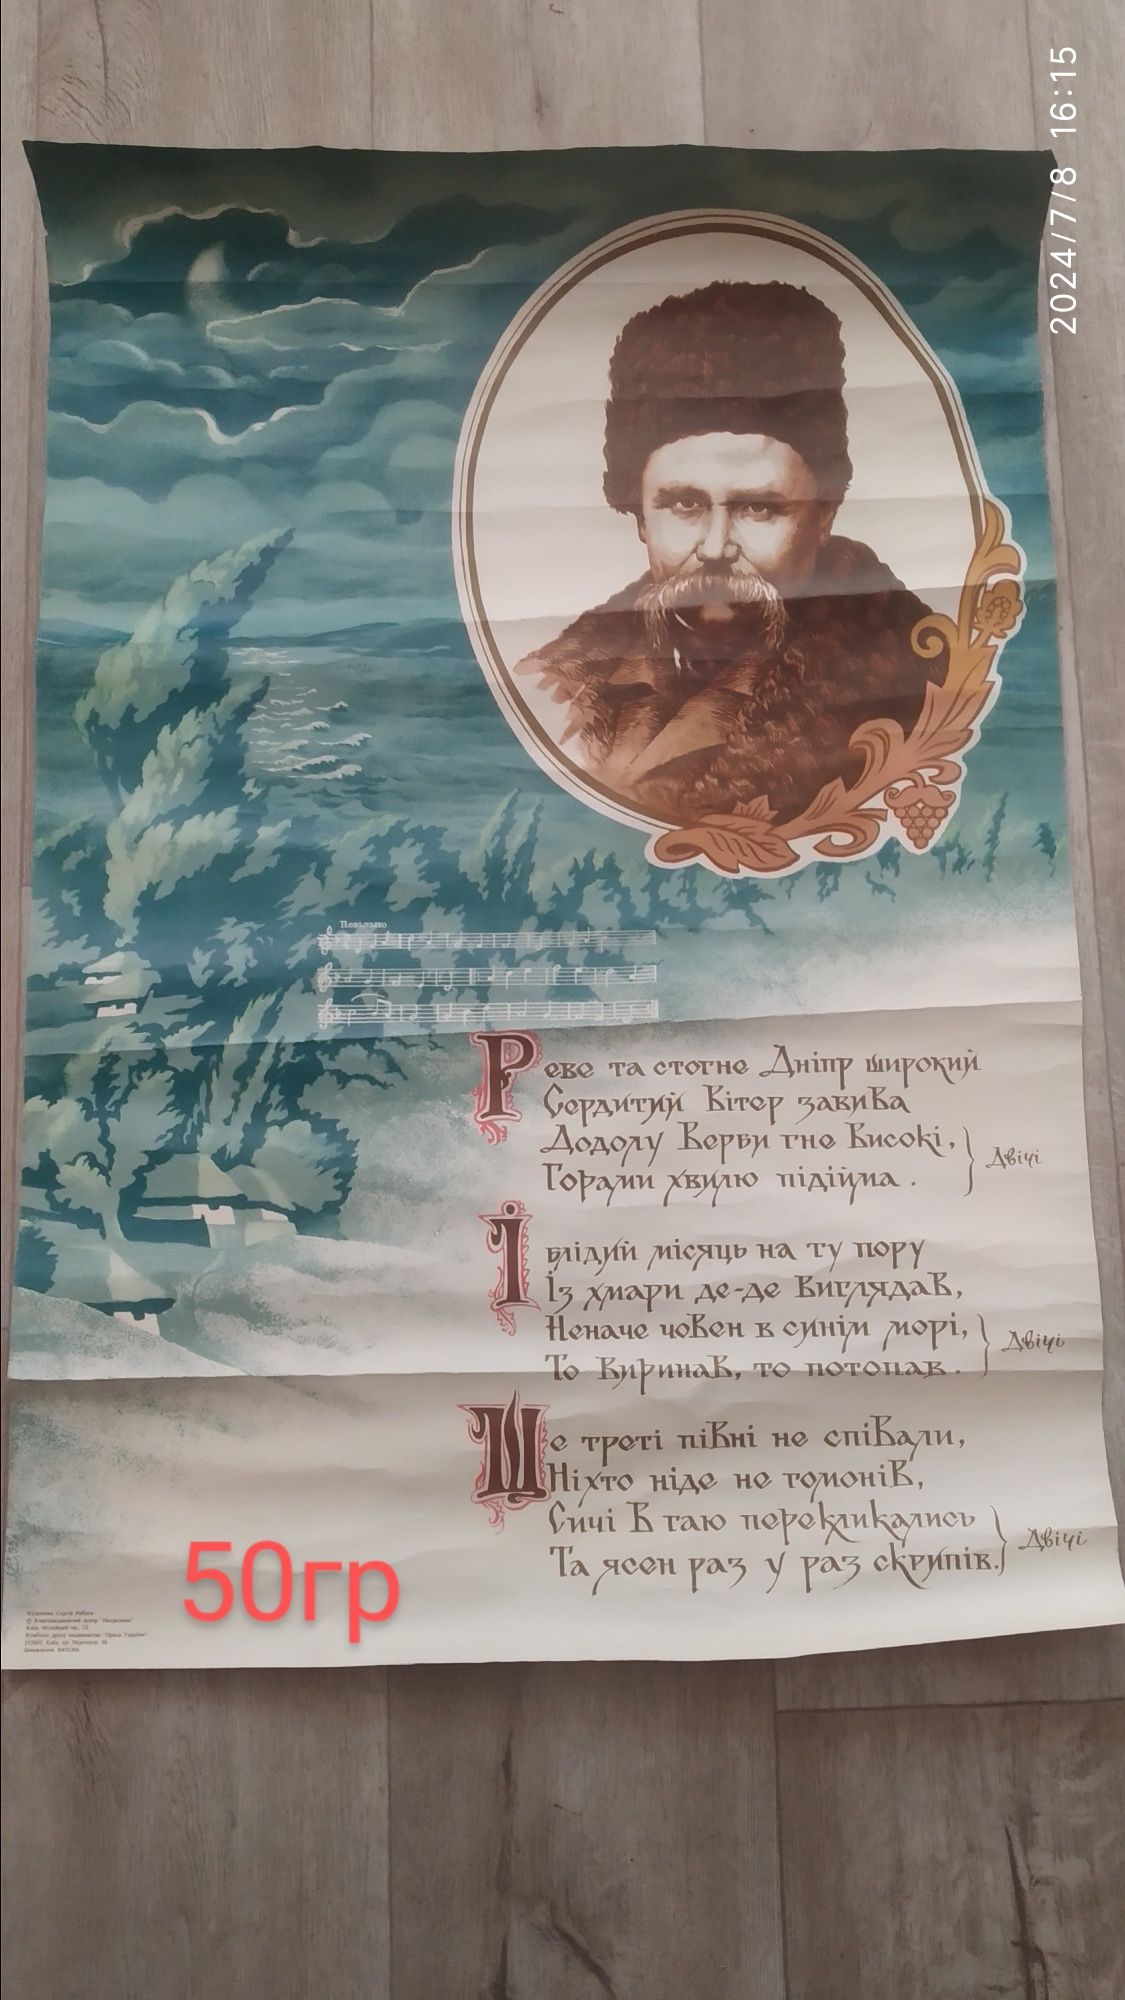 2024/7/8 16:15
Повільно
Реве та стогне Дніпр широкий
Сердитий вітер завива
Додолу верби гне високі,
Горами хвилю підійма.
Двічі
І блідий місяць на ту пору
Із хмари де-де виглядав,
Неначе човен в синім морі,
То виринав, то потопав.
Двічі
Ще треті півні не співали,
Ніхто ніде не гомонів,
Сичі в гаю перекликались
Та ясен раз у раз скрипів.
Двічі
50гр
Художник Сергій
Київ, Музейний
"Преса України"
Київ, пр. Перемоги,
Замовлення